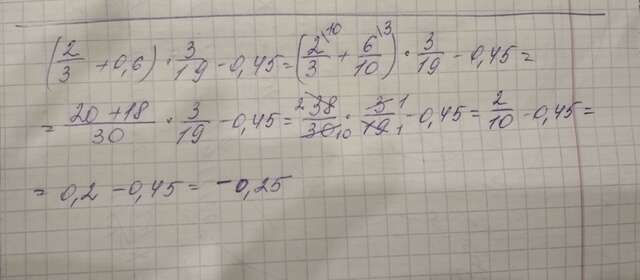 (2/3 + 0,6) · 3/19 - 0,45 = (2/3 \10 + 6/10 \3) · 3/19 - 0,45 =
= 20 + 18/30 · 3/19 - 0,45 = 2 38/30 10 · 3 1/19 1 - 0,45 = 2/10 - 0,45 =
= 0,2 - 0,45 = -0,25